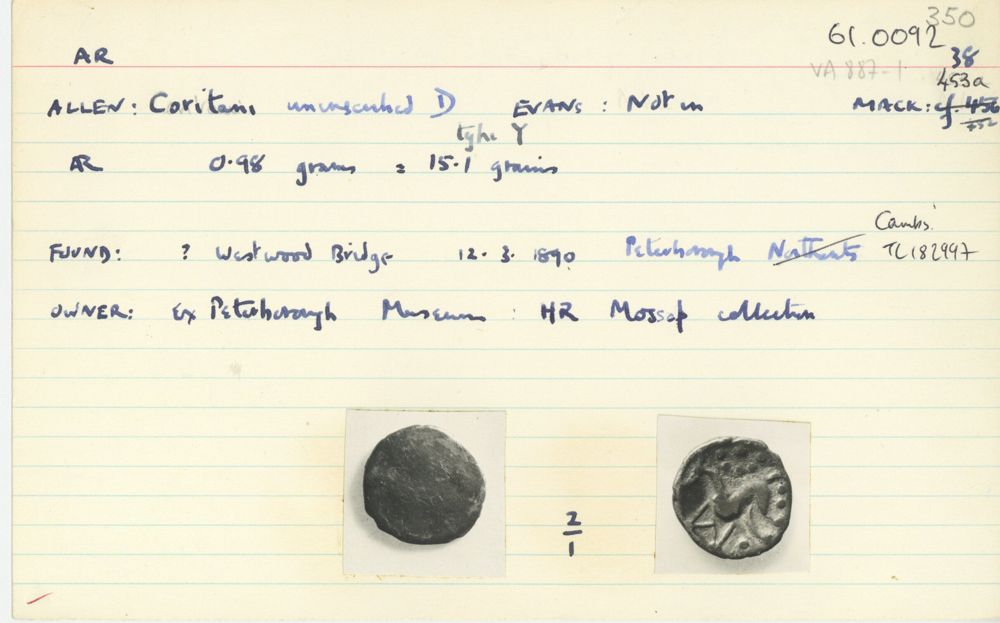 350
61.0092
AR 38
VA 887-1
453a
ALLEN: Coritani uninscribed D EVANS: Not in MACK: cf. 456
type Y 452
AR 0.98 grams = 15.1 grains
Cambs
FOUND: ? Westwood Bridge 12.3.1890 Peterborough Northants TL182997
OWNER: Ex Peterborough Museum : HR Mossop collection
2
1